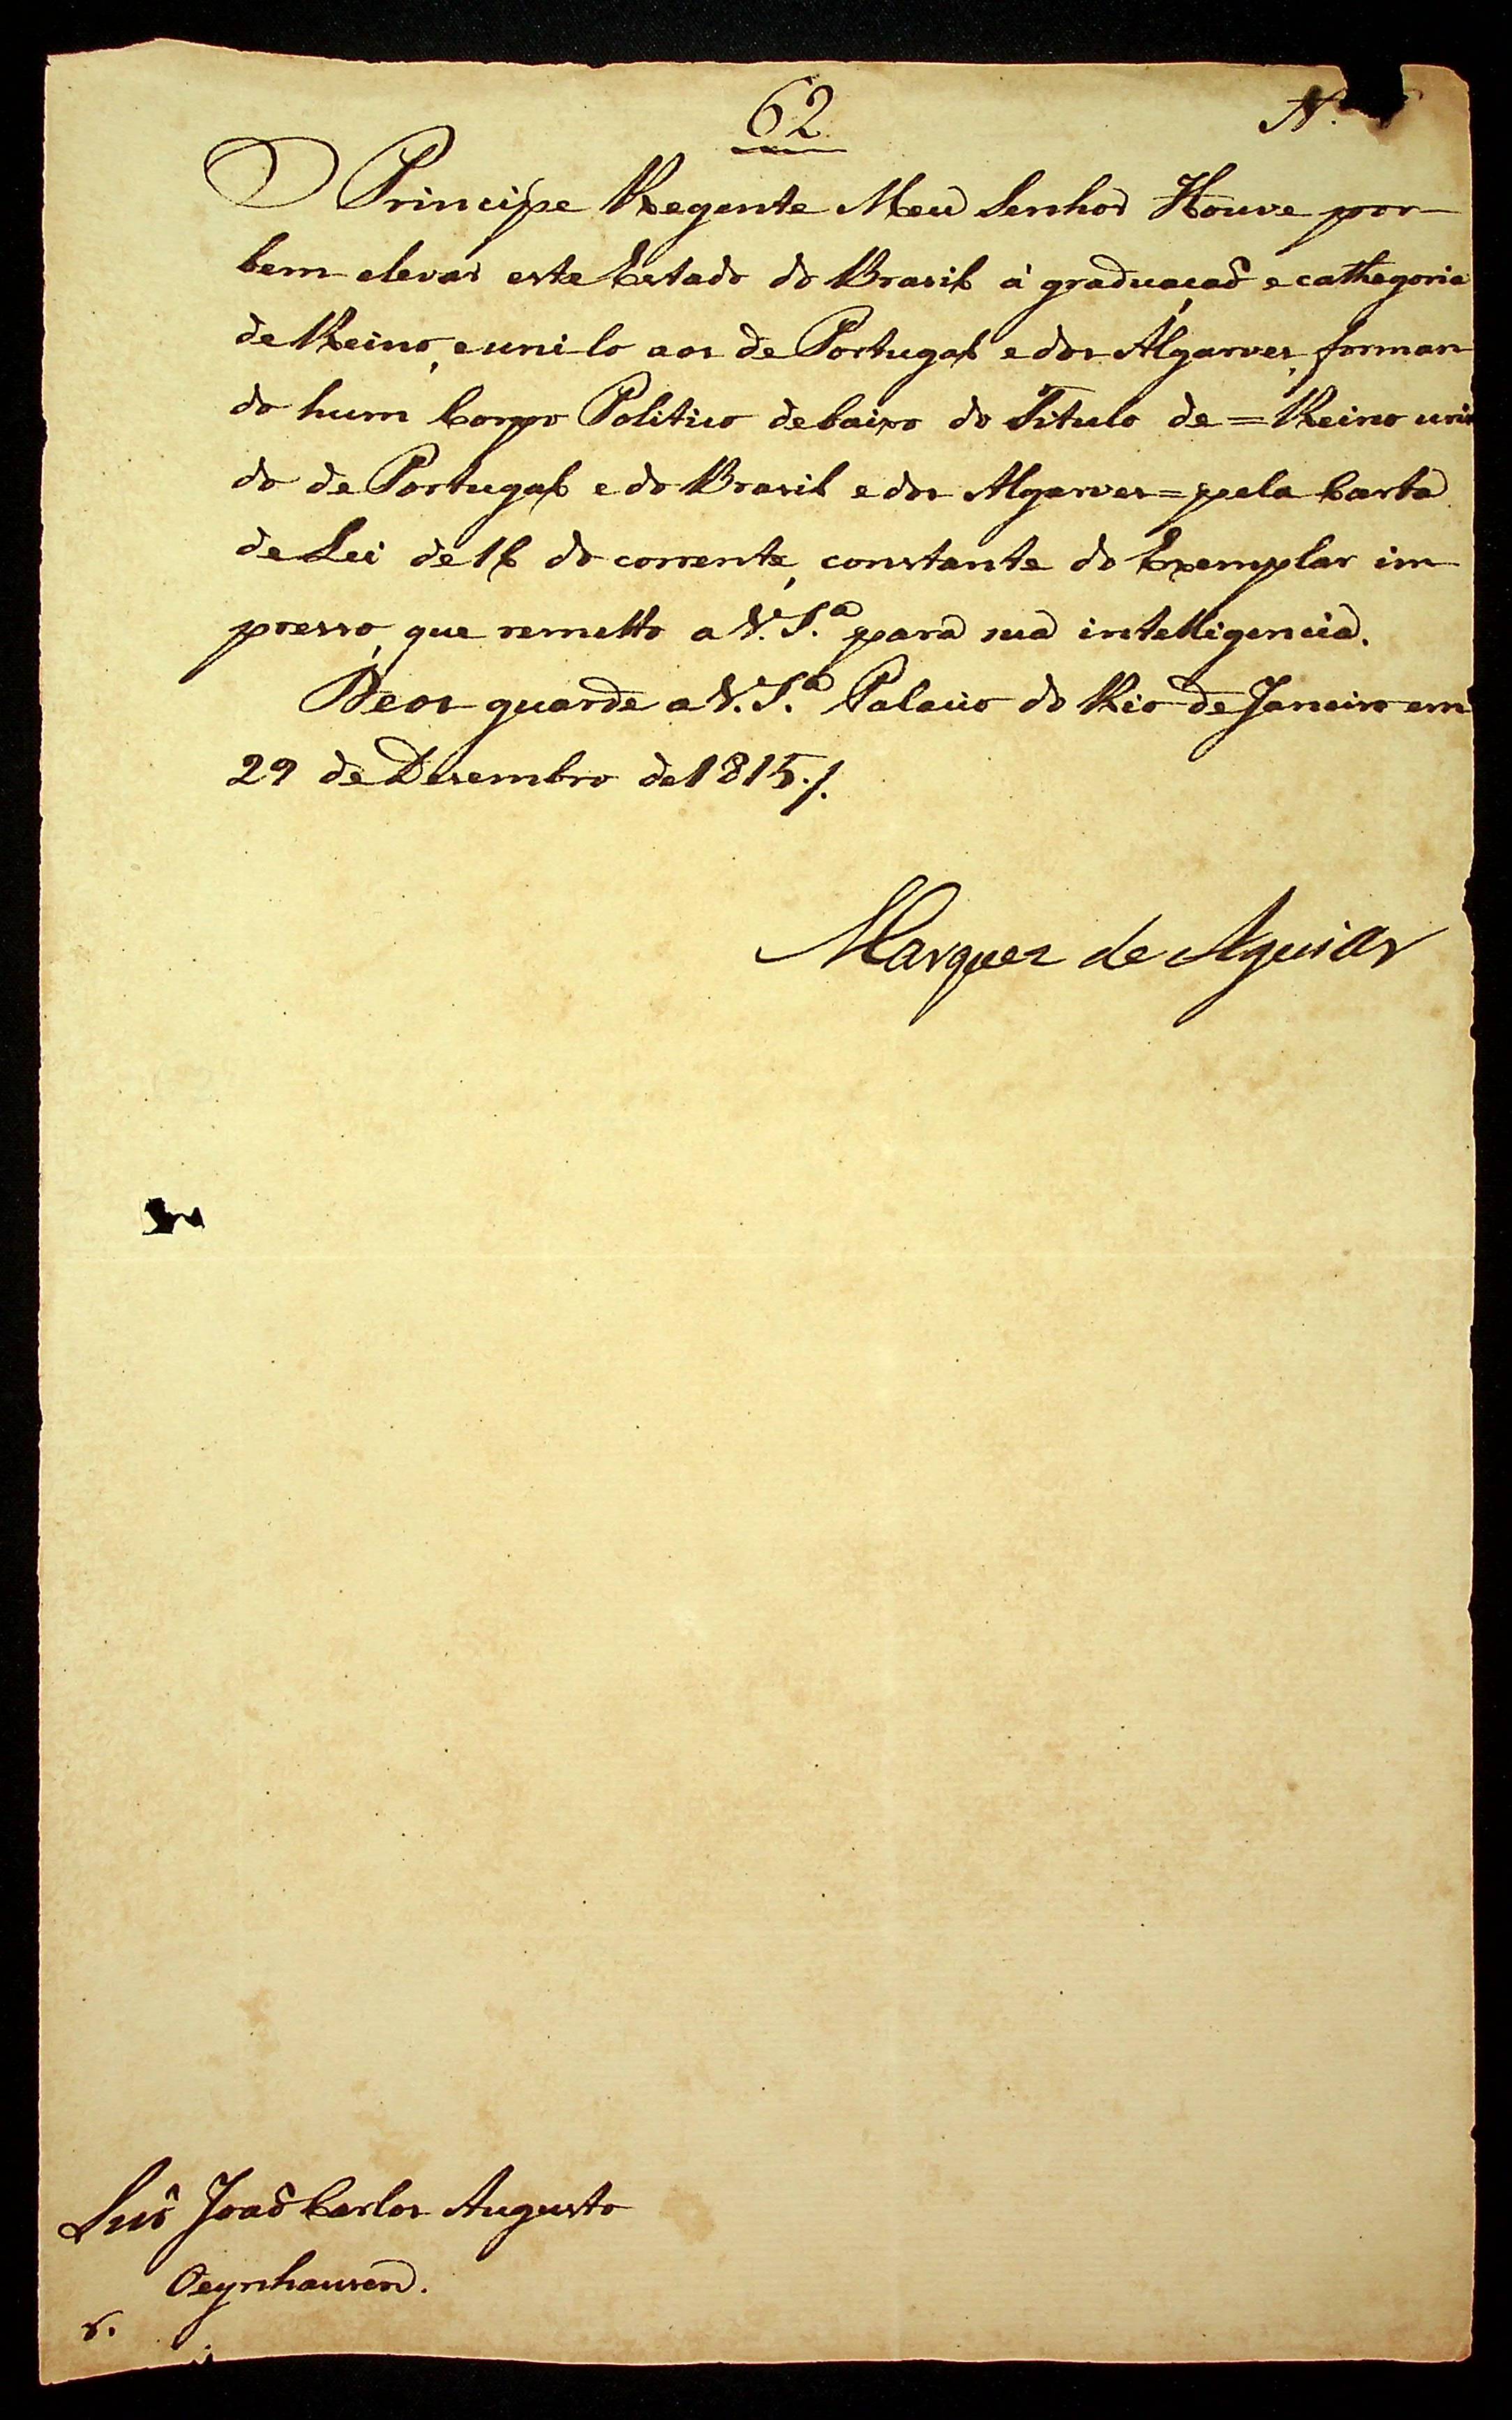 62
N.
O Principe Regente Meu Senhor Houve por
bem elevar este Estado do Brasil á graduaçaõ e cathegoria
de Reino, e unilo aos de Portugal e dos Algarves, forman
do hum Corpo Politico debaixo do Titulo de = Reino uni
do de Portugal e do Brasil e dos Algarves = pela Carta
de Lei de 16 do corrente, constante do Exemplar im
presso, que remetto a V. S.ª para sua intelligencia.
Deos guarde a V. S.ª Palacio do Rio de Janeiro em
29 de Dezembro de 1815./.
Marquez de Aguiar
Joaõ Carlos Augusto
Oeynhausen.